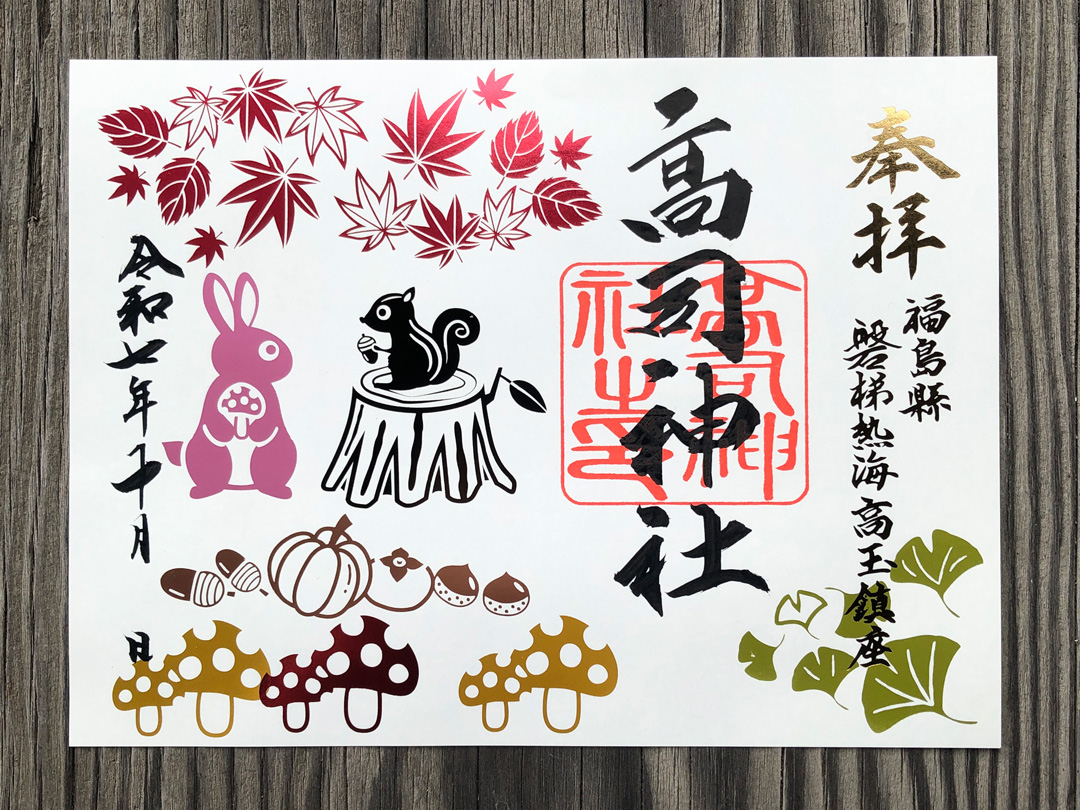 奉拝
福島縣
磐梯熱海高玉鎮座
高司神社
高司神社之印
令和七年十月
日